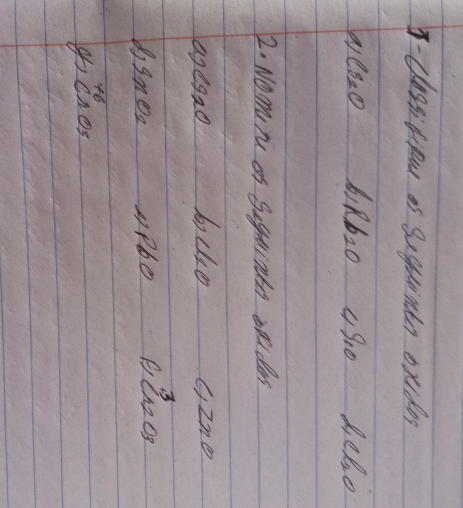 1- Classifique os seguintes óxidos
a) Cs2O b) Rb2O c) SrO d) Cl2O
2. Nomeie os seguintes óxidos
a) Cs2O b) Cl2O c) ZnO
d) SnO2 e) PbO f) Cr2O3 +3
g) CrO3 +6